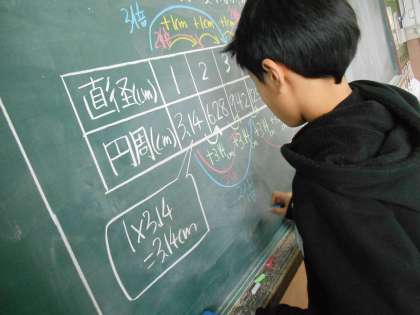 3倍
+1cm +1cm +1cm
2倍
直径(cm) 1 2 3
円周(cm) 3.14 6.28 9.42
+3.14cm +3.14cm +3.14
1×3.14
=3.14cm